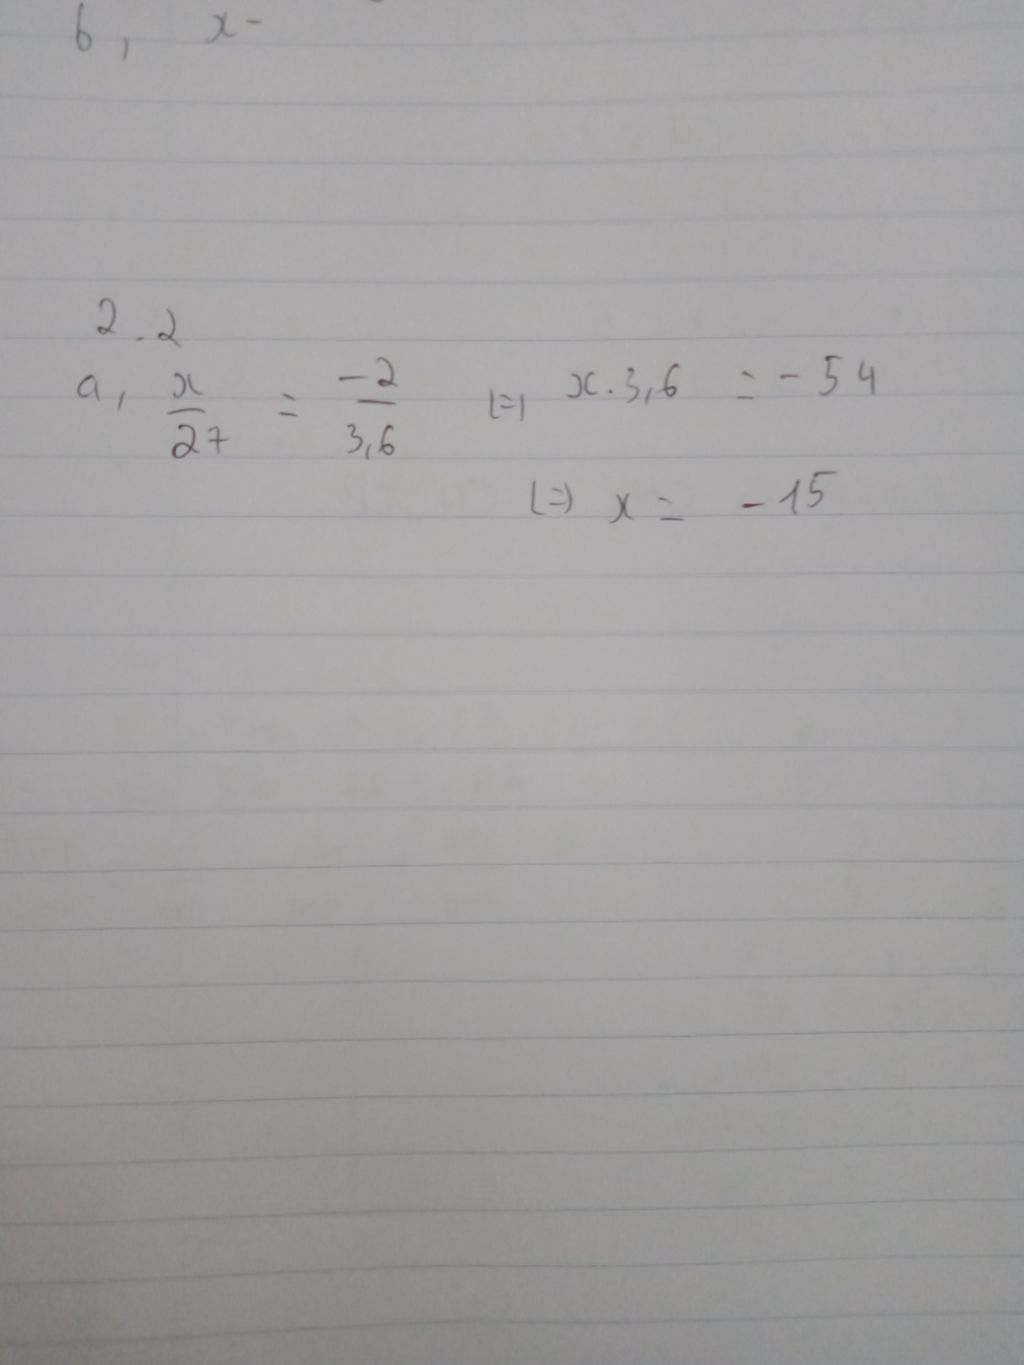 b, x-
2.2
a, x/27 = -2/3,6 (=) x.3,6 = -54
(=) x = -15